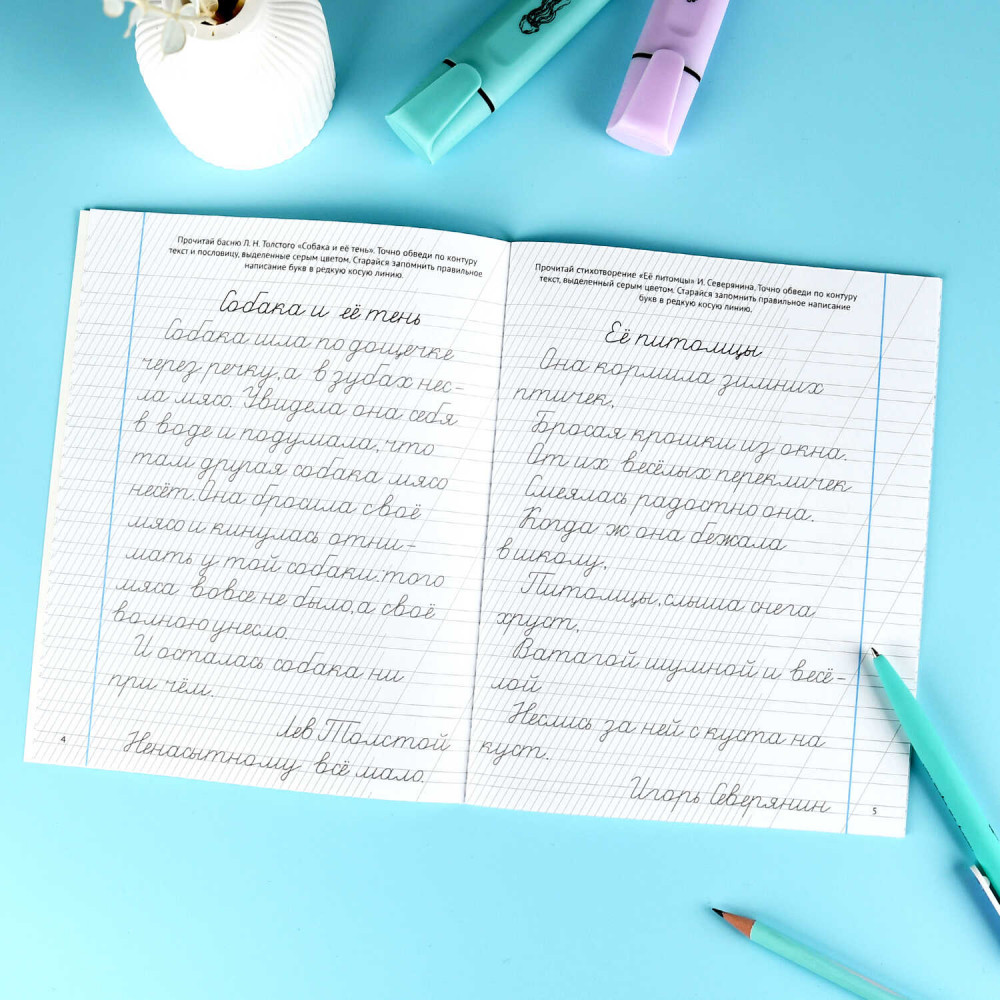 Прочитай басню Л. Н. Толстого «Собака и её тень». Точно обведи по контуру
текст и пословицу, выделенные серым цветом. Старайся запомнить правильное
написание букв в редкую косую линию.
Собака и её тень
Собака шла по дощечке
через речку, а в зубах нес-
ла мясо. Увидела она себя
в воде и подумала, что
там другая собака мясо
несёт. Она бросила своё
мясо и кинулась отни-
мать у той собаки: того
мяса вовсе не было, а своё
волною унесло.
И осталась собака ни
при чём.
Лев Толстой
Ненасытному всё мало.
4
Прочитай стихотворение «Её питомцы» И. Северянина. Точно обведи по контуру
текст, выделенный серым цветом. Старайся запомнить правильное написание
букв в редкую косую линию.
Её питомцы
Она кормила зимних
птичек,
Бросая крошки из окна.
От их весёлых перекличек
Смеялась радостно она.
Когда ж она бежала
в школу,
Питомцы, слыша снега
хруст,
Ватагой шумной и весё-
лой
Неслись за ней с куста на
куст.
Игорь Северянин
5